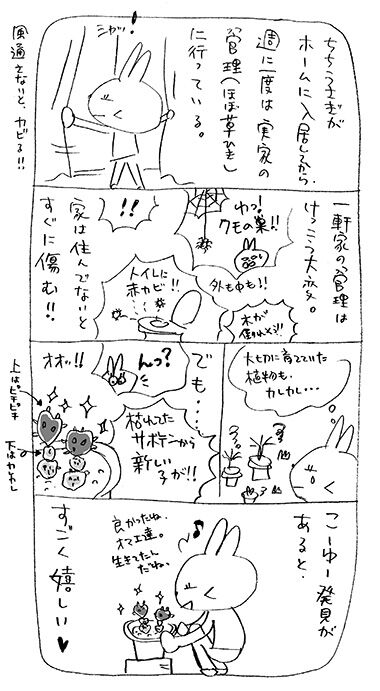 ちちうさぎが
ホームに入居してから、
週に一度は実家の
管理(ほぼ草ひき)
に行っている。
シャッ!
風通さないと、カビる!!
一軒家の管理は
けっこう大変。
わっ!
クモの巣!!
外も中も!!
木が
倒れそう!!
トイレに
赤カビ!!
!!
家は住んでないと
すぐに傷む!!
大切に育てていた
植物も、
カレカレ・・・
でも・・・
んっ?
枯れてた
サボテンから
新しい
子が!!
オオッ!!
上はピチピチ
下はカレカレ
こーゆー発見が
あると、
♪
良かったね、
オマエ達。
生きてたん
だね。
すごく嬉しい♥